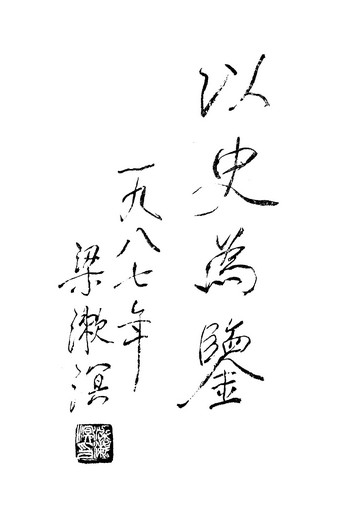 以史為鑒
一九八七年
梁漱溟